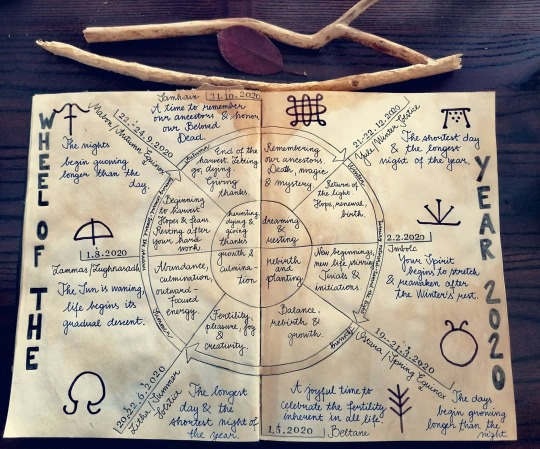 WHEEL OF THE
YEAR 2020
Samhain
31.10.2020
A time to remember
our ancestors & honor
our Beloved
Dead.
21-22.12.2020
Yule/Winter Solstice
The shortest day
& the longest
night of the year.
2.2.2020
Imbolc
Your Spirit
begins to stretch
& reawaken after
the Winter's rest.
19-21.3.2020
Ostara/Spring Equinox
The days
begin growing
longer than the
night.
A joyful time to
celebrate the fertility
inherent in all life.
1.5.2020
Beltane
20-22.6.2020
Litha/Summer
Solstice
The longest
day & the
shortest night of
the year.
1.8.2020
Lammas/Lughnasadh
The Sun is waning,
life begins its
gradual descent.
22-24.9.2020
Mabon/Autumn Equinox
The nights
begin growing
longer than the
day.
End of the
harvest. Letting
go, dying.
Giving
thanks.
Remembering
our ancestors.
Death, magic
& mystery.
Return of
the light.
Hope, renewal,
birth.
New beginnings,
new life stirring.
Initials &
initiations.
Balance,
rebirth &
growth.
Fertility,
pleasure, joy
&
creativity.
Abundance,
culmination,
outward-
focused
energy.
Beginning
to harvest.
Hopes & fears.
Resting after
your hard
work.
harvesting,
dying &
giving
thanks
dreaming
&
resting
rebirth
and
planting
growth &
culmina-
tion
Autumn
Winter
Spring
Summer